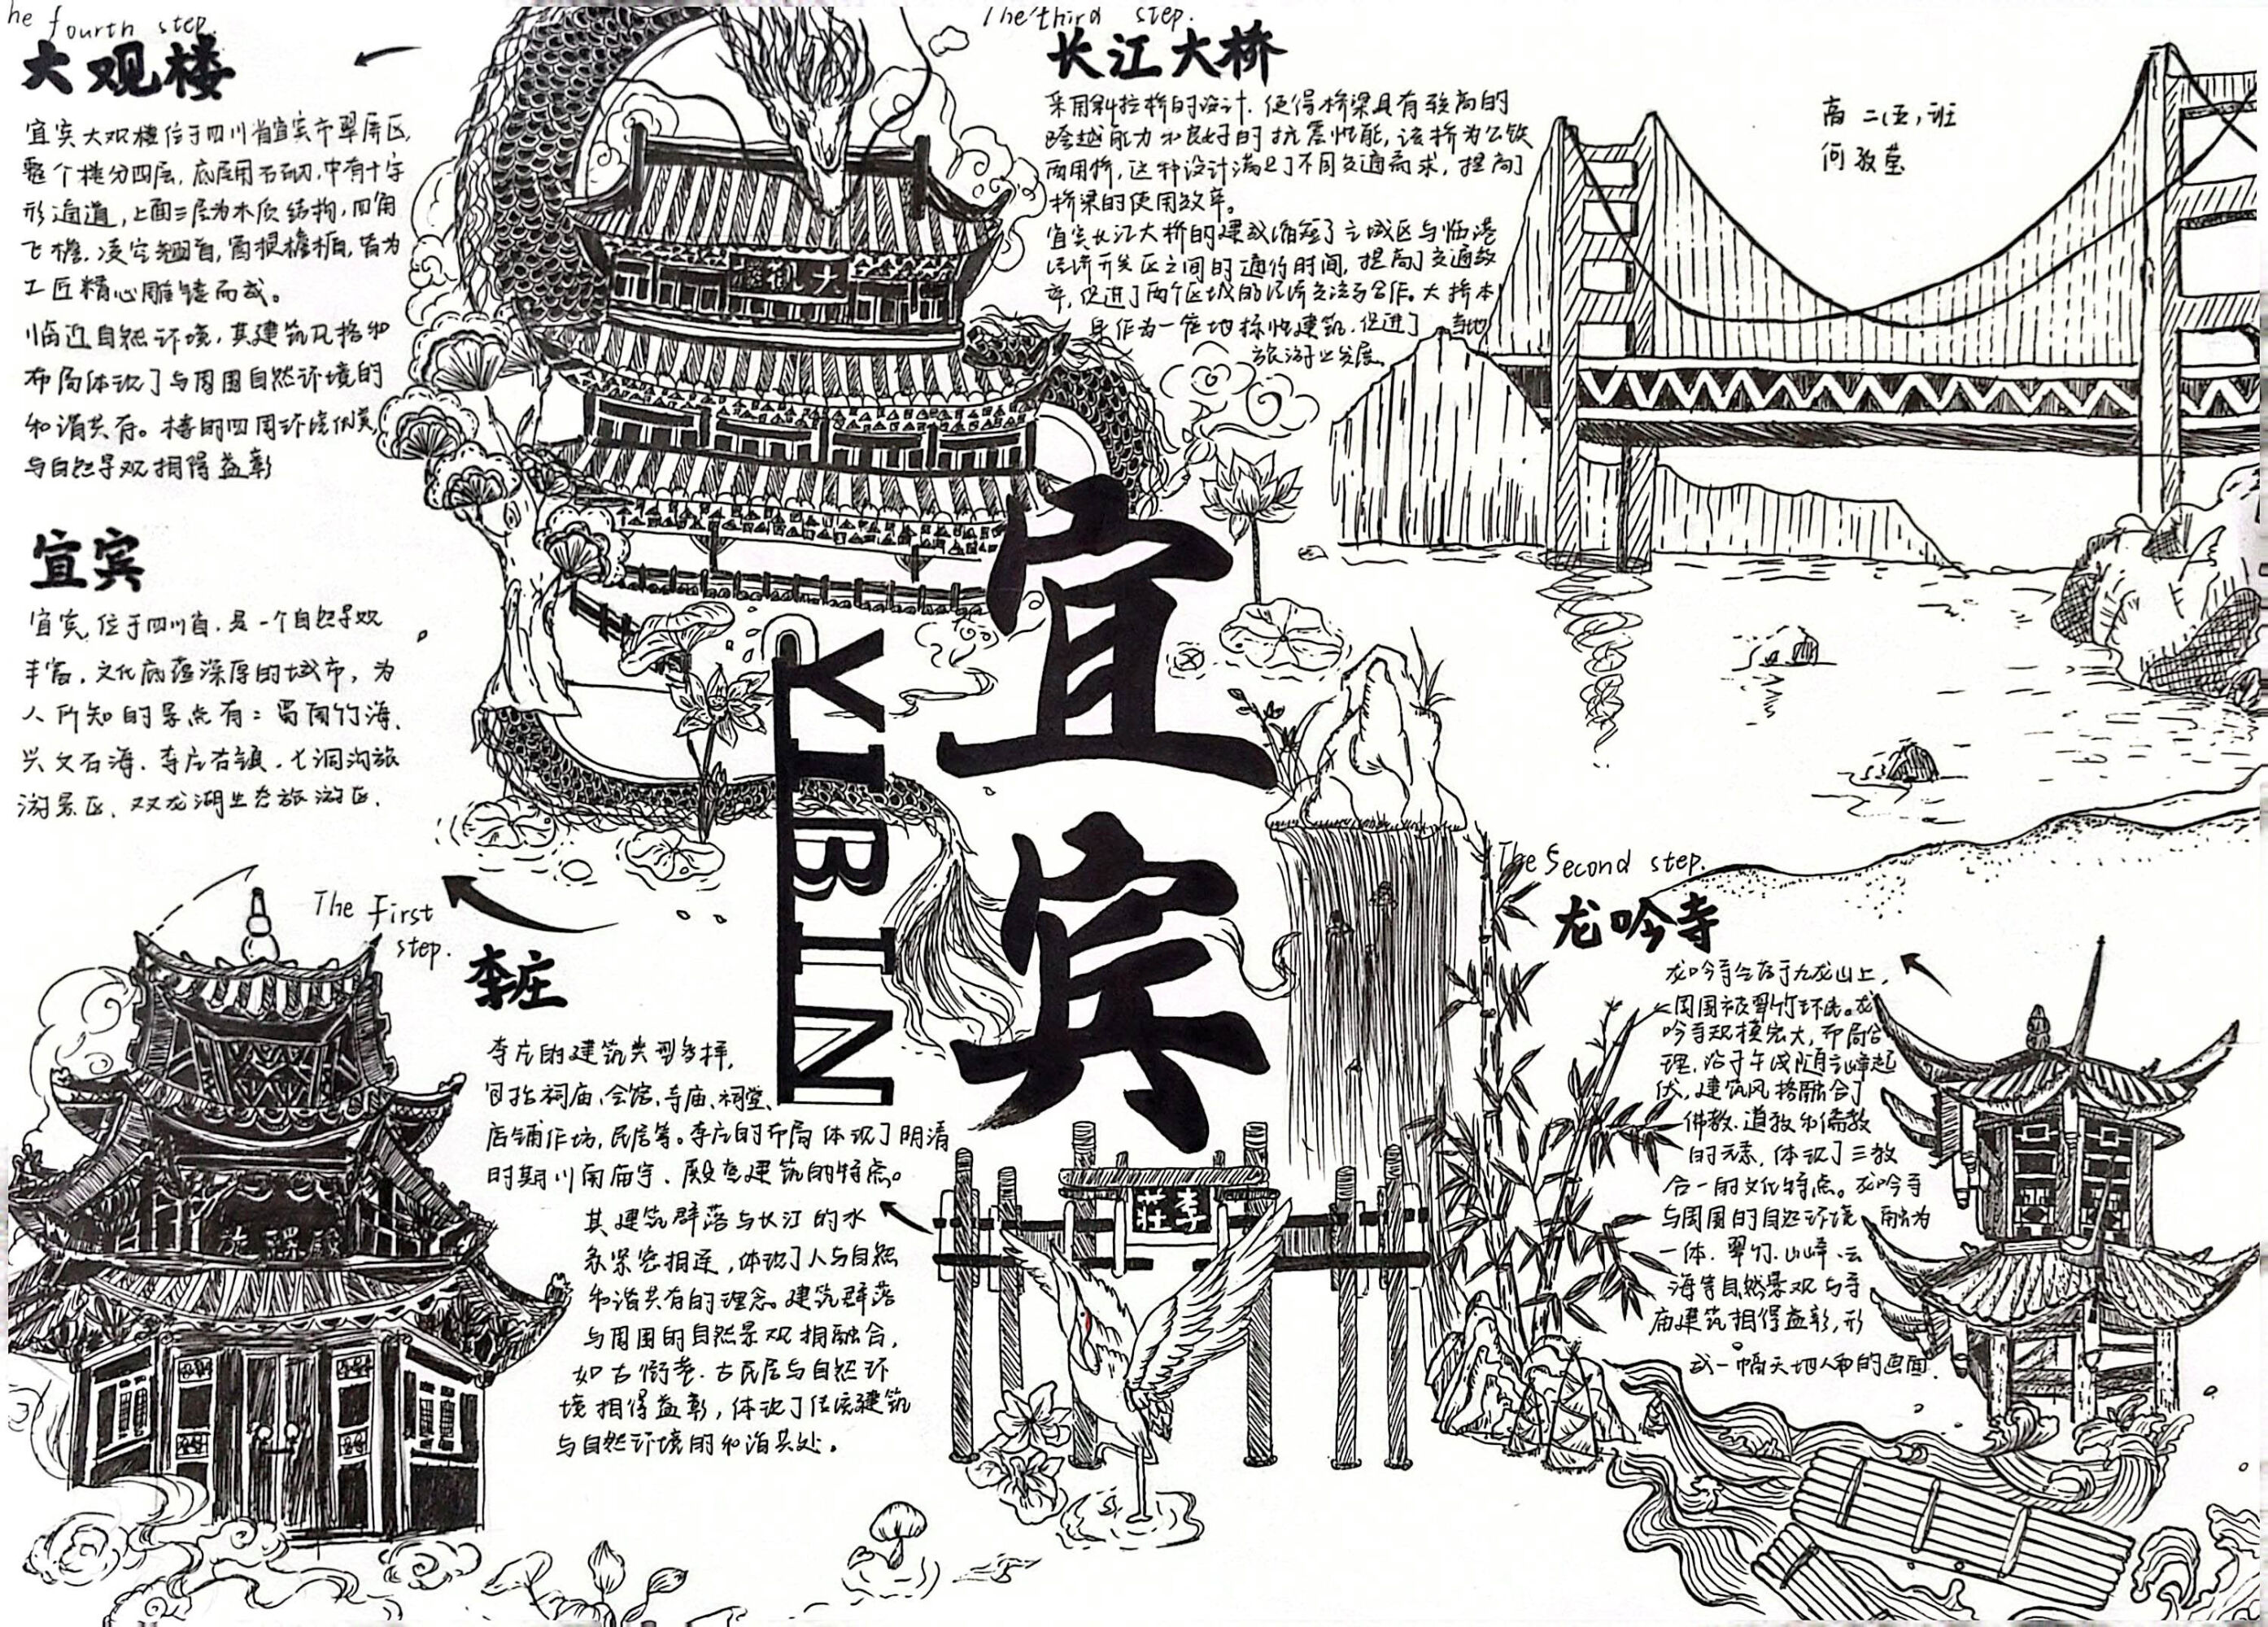 he fourth step.
大观楼
宜宾大观楼位于四川省宜宾市翠屏区,
整个楼分四层,底层用石砌,中有十字
形通道,上面三层为木质结构,四角
飞檐,凌空翘首,窗棂檐楣,皆为
工匠精心雕镂而成。
临近自然环境,其建筑风格和
布局体现了与周围自然环境的
和谐共存。楼的四周环境优美,
与自然景观相得益彰
宜宾
宜宾,位于四川省,是一个自然景观
丰富,文化底蕴深厚的城市,为
人所知的景点有:蜀南竹海、
兴文石海、李庄古镇、七洞沟旅
游景区、双龙湖生态旅游区.
The third step.
长江大桥
采用斜拉桥的设计,使得桥梁具有较高的
跨越能力和良好的抗震性能,该桥为公铁
两用桥,这种设计满足了不同交通需求,提高了
桥梁的使用效率。
宜宾长江大桥的建成缩短了主城区与临港
经济开发区之间的通行时间,提高了交通效
率,促进了两个区域的经济交流与合作。大桥本
身作为一座地标性建筑,促进了当地
旅游业发展
高二(五)班
何敬莹
大觀樓
宜宾
YIBIN
The First
step.
李庄
李庄的建筑类型多样,
包括祠庙、会馆、寺庙、祠堂、
店铺作坊,民居等。李庄的布局体现了明清
时期川南庙宇、殿堂建筑的特点。
其建筑群落与长江的水
系紧密相连,体现了人与自然
和谐共有的理念。建筑群落
与周围的自然景观相融合,
如古街巷、古民居与自然环
境相得益彰,体现了传统建筑
与自然环境的和谐共处。
李莊
旋螺殿
The Second step.
龙吟寺
龙吟寺坐落于九龙山上,
周围被翠竹环绕。龙
吟寺规模宏大,布局合
理,沿子午线随山峰起
伏,建筑风格融合了
佛教、道教和儒教
的元素,体现了三教
合一的文化特点。龙吟寺
与周围的自然环境融为
一体,翠竹、山峰、云
海等自然景观与寺
庙建筑相得益彰,形
成一幅天地人和的画面.